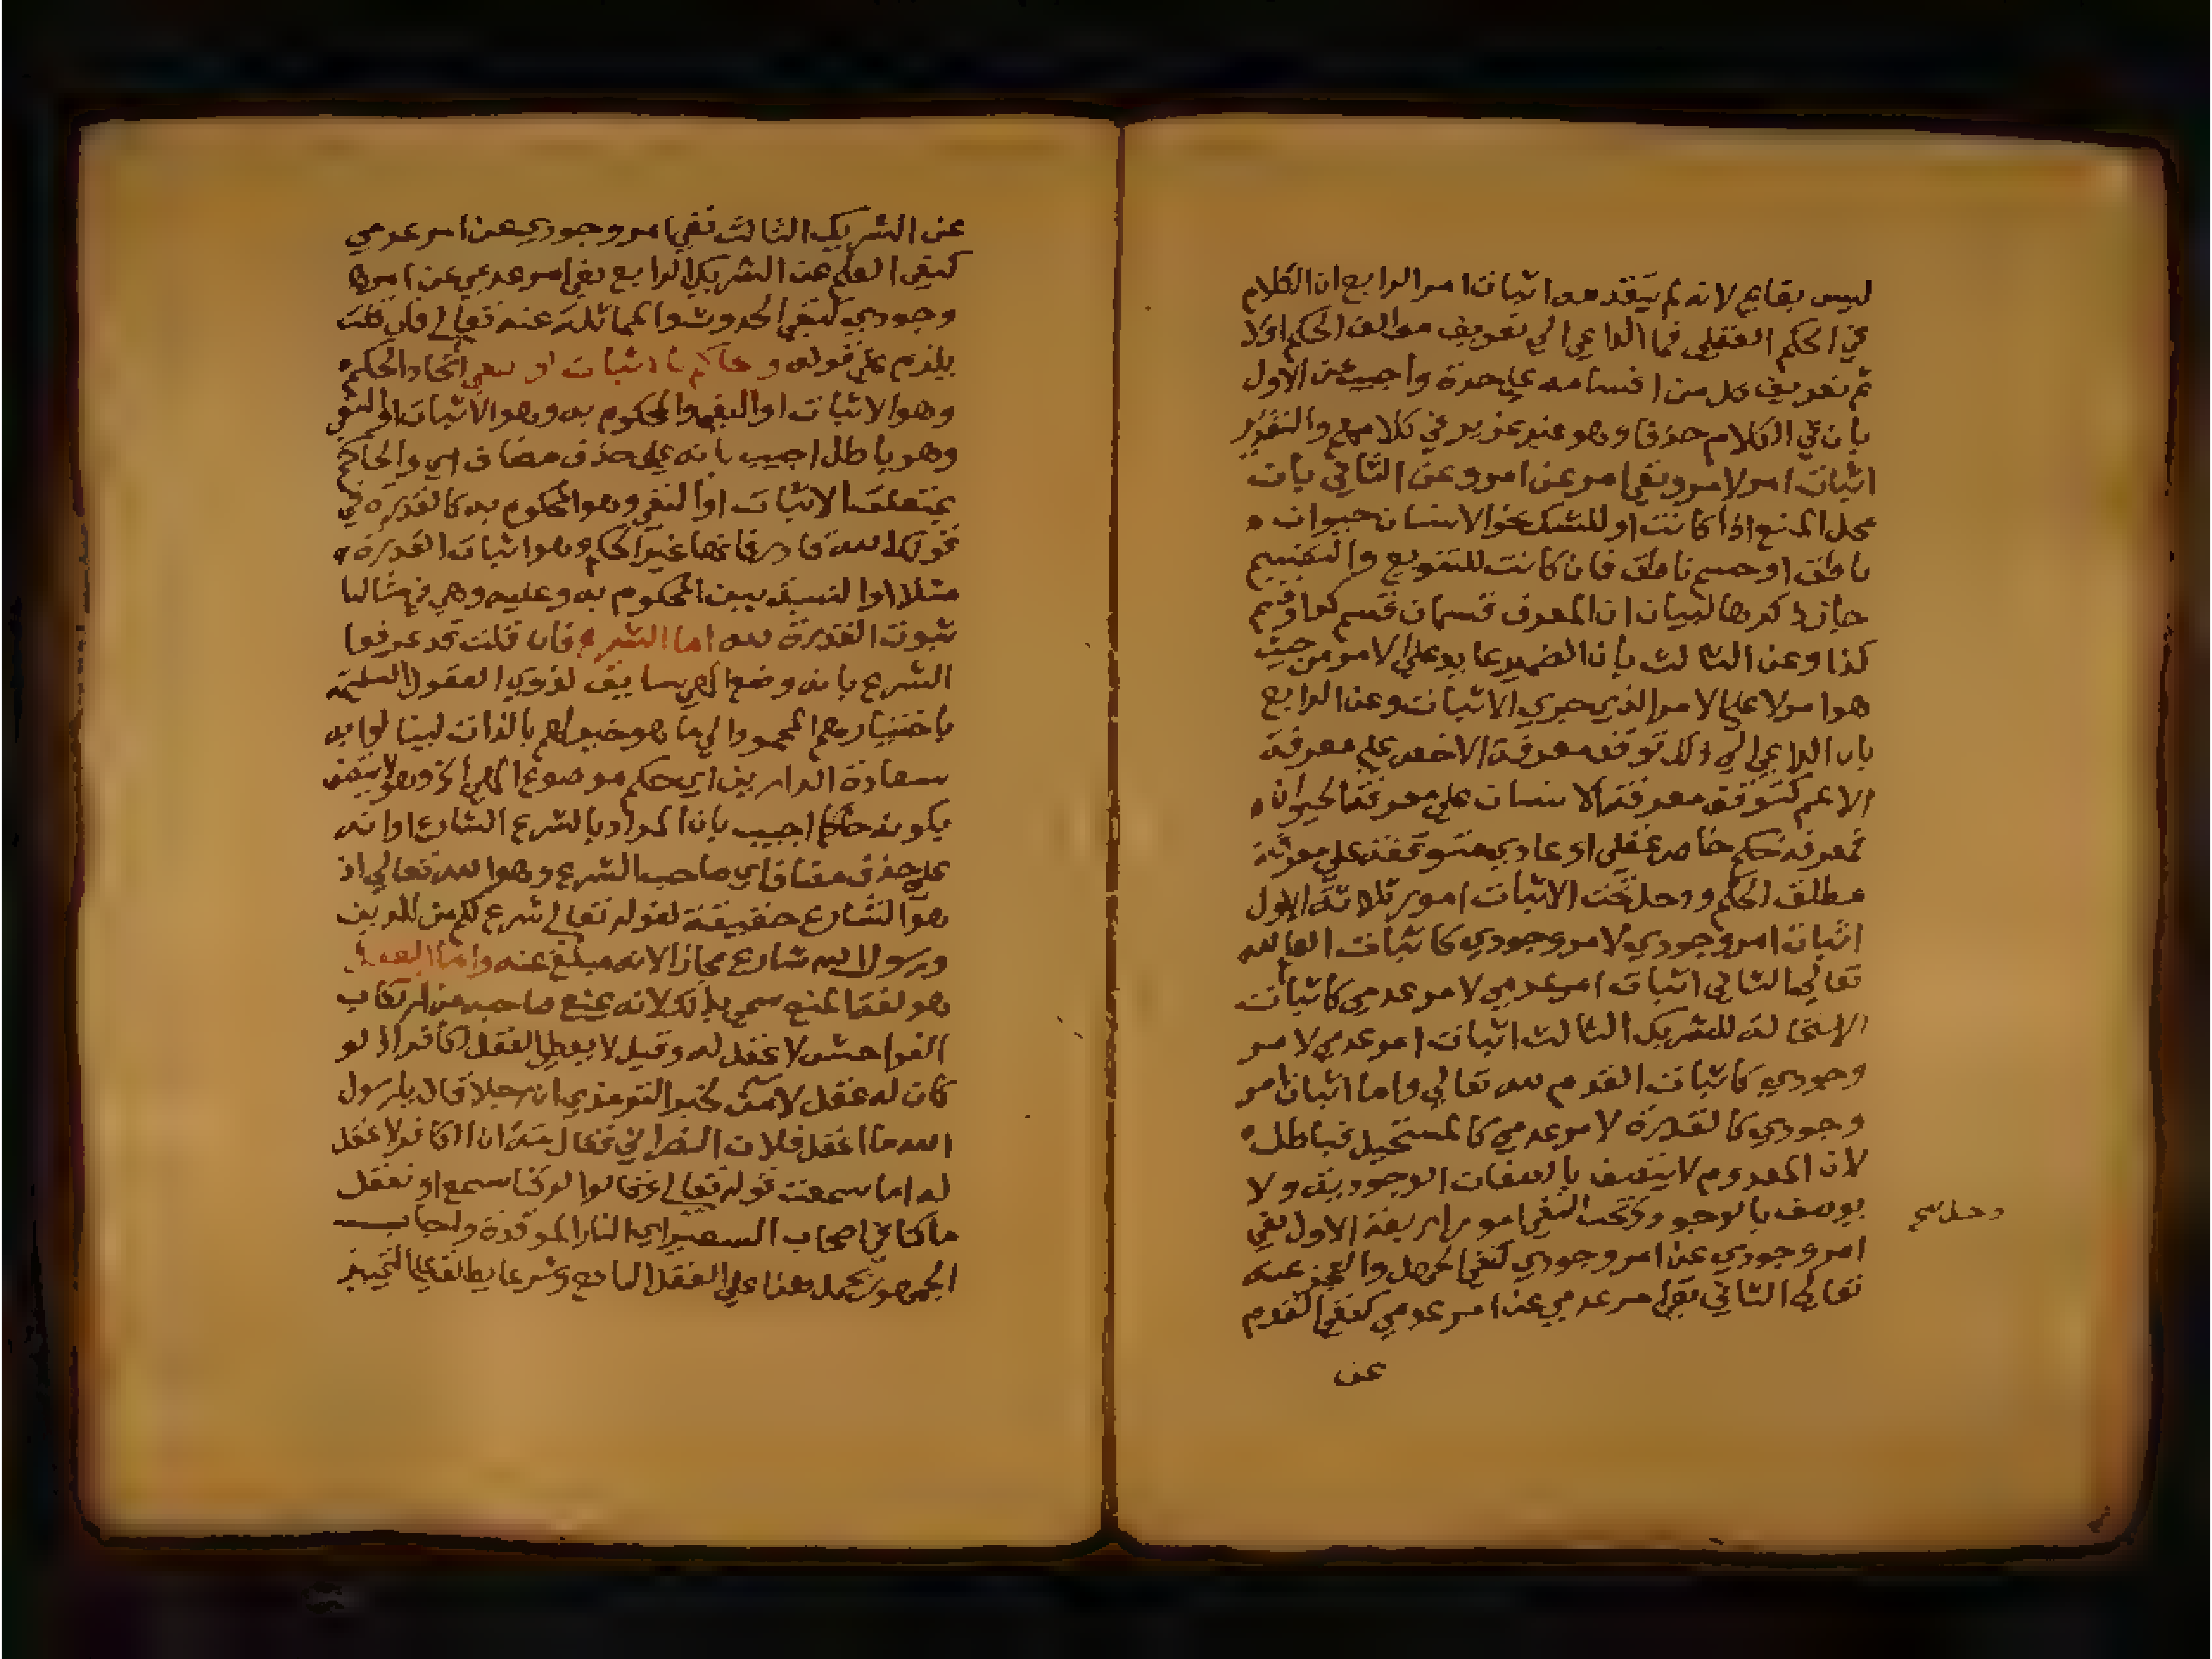 ليس بقايم لانه لم يتقدمه اثبات امر الرابع ان الكلام
في الحكم العقلي فما الداعي الي تعريف مطلق الحكم اولا
ثم تعريف كل من اقسامه علي حدة واجيب عن الاول
بان في الكلام حذفا وهو غير عزيز في كلامهم والتقدير
اثبات امر لامر ونفي امر عن امر وعن الثاني بان
محل المنع اذا كانت او للشك نحو الانسان حيوان
ناطق او جسم ناطق فان كانت للتنويع والتقسيم
جاز ذكرها لبيان ان المعرف قسمان قسم كذا وقسم
كذا وعن الثالث بان الضمير عايد علي الامر من حيث
هو امر لا علي الامر الذي جري الاثبات وعن الرابع
بان الداعي الي ذلك توقف معرفة الاخص علي معرفة
الاعم كتوقف معرفة الانسان علي معرفة الحيوان
فمعرفة حكم خاص عقلي او عادي متوقفة علي معرفة
مطلق الحكم ودخل تحت الاثبات امور ثلاثة الاول
اثبات امر وجودي لامر وجودي كاثبات العلم لله
تعالي الثاني اثبات امر عدمي لامر عدمي كاثبات
الاستحالة للشريك الثالث اثبات امر عدمي لامر
وجودي كاثبات القدم لله تعالي واما اثبات امر
وجودي كالقدرة لامر عدمي كالمستحيل فباطل
لان المعدوم لا يتصف بالصفات الوجودية ولا
يوصف بالوجود وتحت النفي امور اربعة الاول نفي
ودخل صح
امر وجودي عن امر وجودي كنفي الجهل والعجز عنه
تعالي الثاني نفي امر عدمي عن امر عدمي كنفي القدم
عن
عن الشريك الثالث نفي امر وجودي عن امر عدمي
كنفي العلم عن الشريك الرابع نفي امر عدمي عن امر
وجودي كنفي الحدوث والمماثلة عنه تعالي فان قلت
يلزم علي قوله وحاكم باثبات او نفي اتحاد الحكم
وهو الاثبات او النفي والمحكوم به وهو الاثبات او النفي
وهو باطل اجيب بانه علي حذف مضاف اي والحاكم
بمتعلق الاثبات او النفي وهو المحكوم به كالقدرة في
قولك الله قادر فانها غير الحكم وهو اثبات القدرة
مثلا او النسبة بين المحكوم به وعليه وهي في مثالنا
ثبوت القدرة لله اما الشرع فان قلت قد عرفوا
الشرع بانه وضع الهي سايق لذوي العقول السليمة
باختيارهم المحمود الي ما هو خير لهم بالذات لينالوا به
سعادة الدارين اي حكم موضوع الهي الخ وهو لا يتصف
بكونه حاكما اجيب بان المراد بالشرع الشارع او انه
علي حذف مضاف اي صاحب الشرع وهو الله تعالي اذ
هو الشارع حقيقة لقوله تعالي شرع لكم من الدين
ورسول الله شارع مجازا لانه مبلغ عنه واما العقل
هو لغة المنع سمي بذلك لانه يمنع صاحبه من ارتكاب
الفواحش لا عقل له وقيل لا يعطي العقل لكافر اذ لو
كان له عقل لامن لخبر الترمذي ان رجلا قال يا رسول
الله ما اعقل فلان النصراني فقال مه ان الكافر لا عقل
له اما سمعت قوله تعالي وقالوا لو كنا نسمع او نعقل
ما كنا في اصحاب السعير اي النار الموقدة واجاب
الجمهور بحمل هذا علي العقل النافع وشرعا يطلق علي التمييز